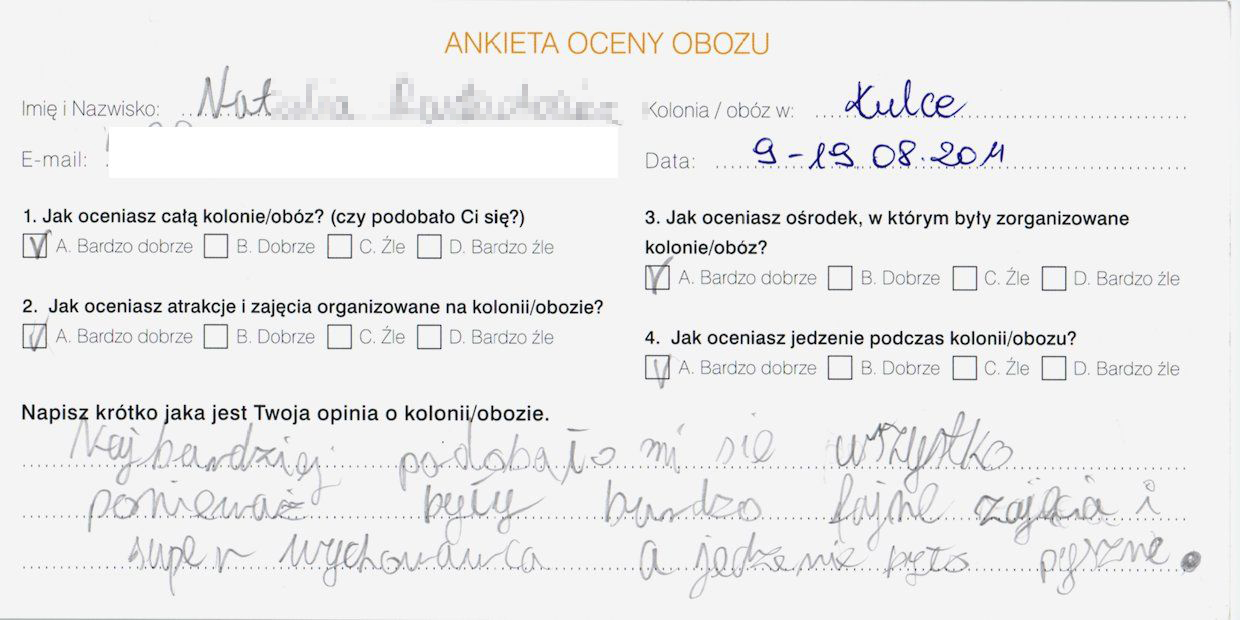 ANKIETA OCENY OBOZU
Imię i Nazwisko: Nat
Kolonia / obóz w: Łulce
E-mail:
Data: 9-19.08.2011
1. Jak oceniasz całą kolonie/obóz? (czy podobało Ci się?)
A. Bardzo dobrze B. Dobrze C. Źle D. Bardzo źle
2. Jak oceniasz atrakcje i zajęcia organizowane na kolonii/obozie?
A. Bardzo dobrze B. Dobrze C. Źle D. Bardzo źle
3. Jak oceniasz ośrodek, w którym były zorganizowane
kolonie/obóz?
A. Bardzo dobrze B. Dobrze C. Źle D. Bardzo źle
4. Jak oceniasz jedzenie podczas kolonii/obozu?
A. Bardzo dobrze B. Dobrze C. Źle D. Bardzo źle
Napisz krótko jaka jest Twoja opinia o kolonii/obozie.
Najbardziej podobało mi się wszystko
ponieważ były bardzo fajne zajęcia i
super wychowawca a jedzenie było pyszne.